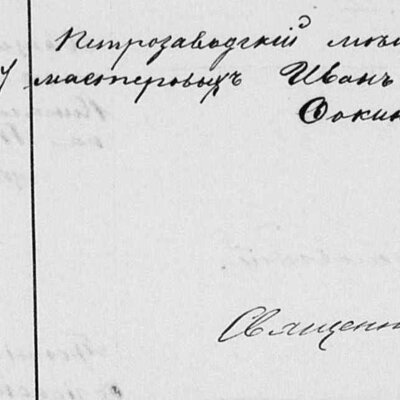 Петрозаводскій мѣщ
мастеровыхъ Иванъ
Фокин
Священн